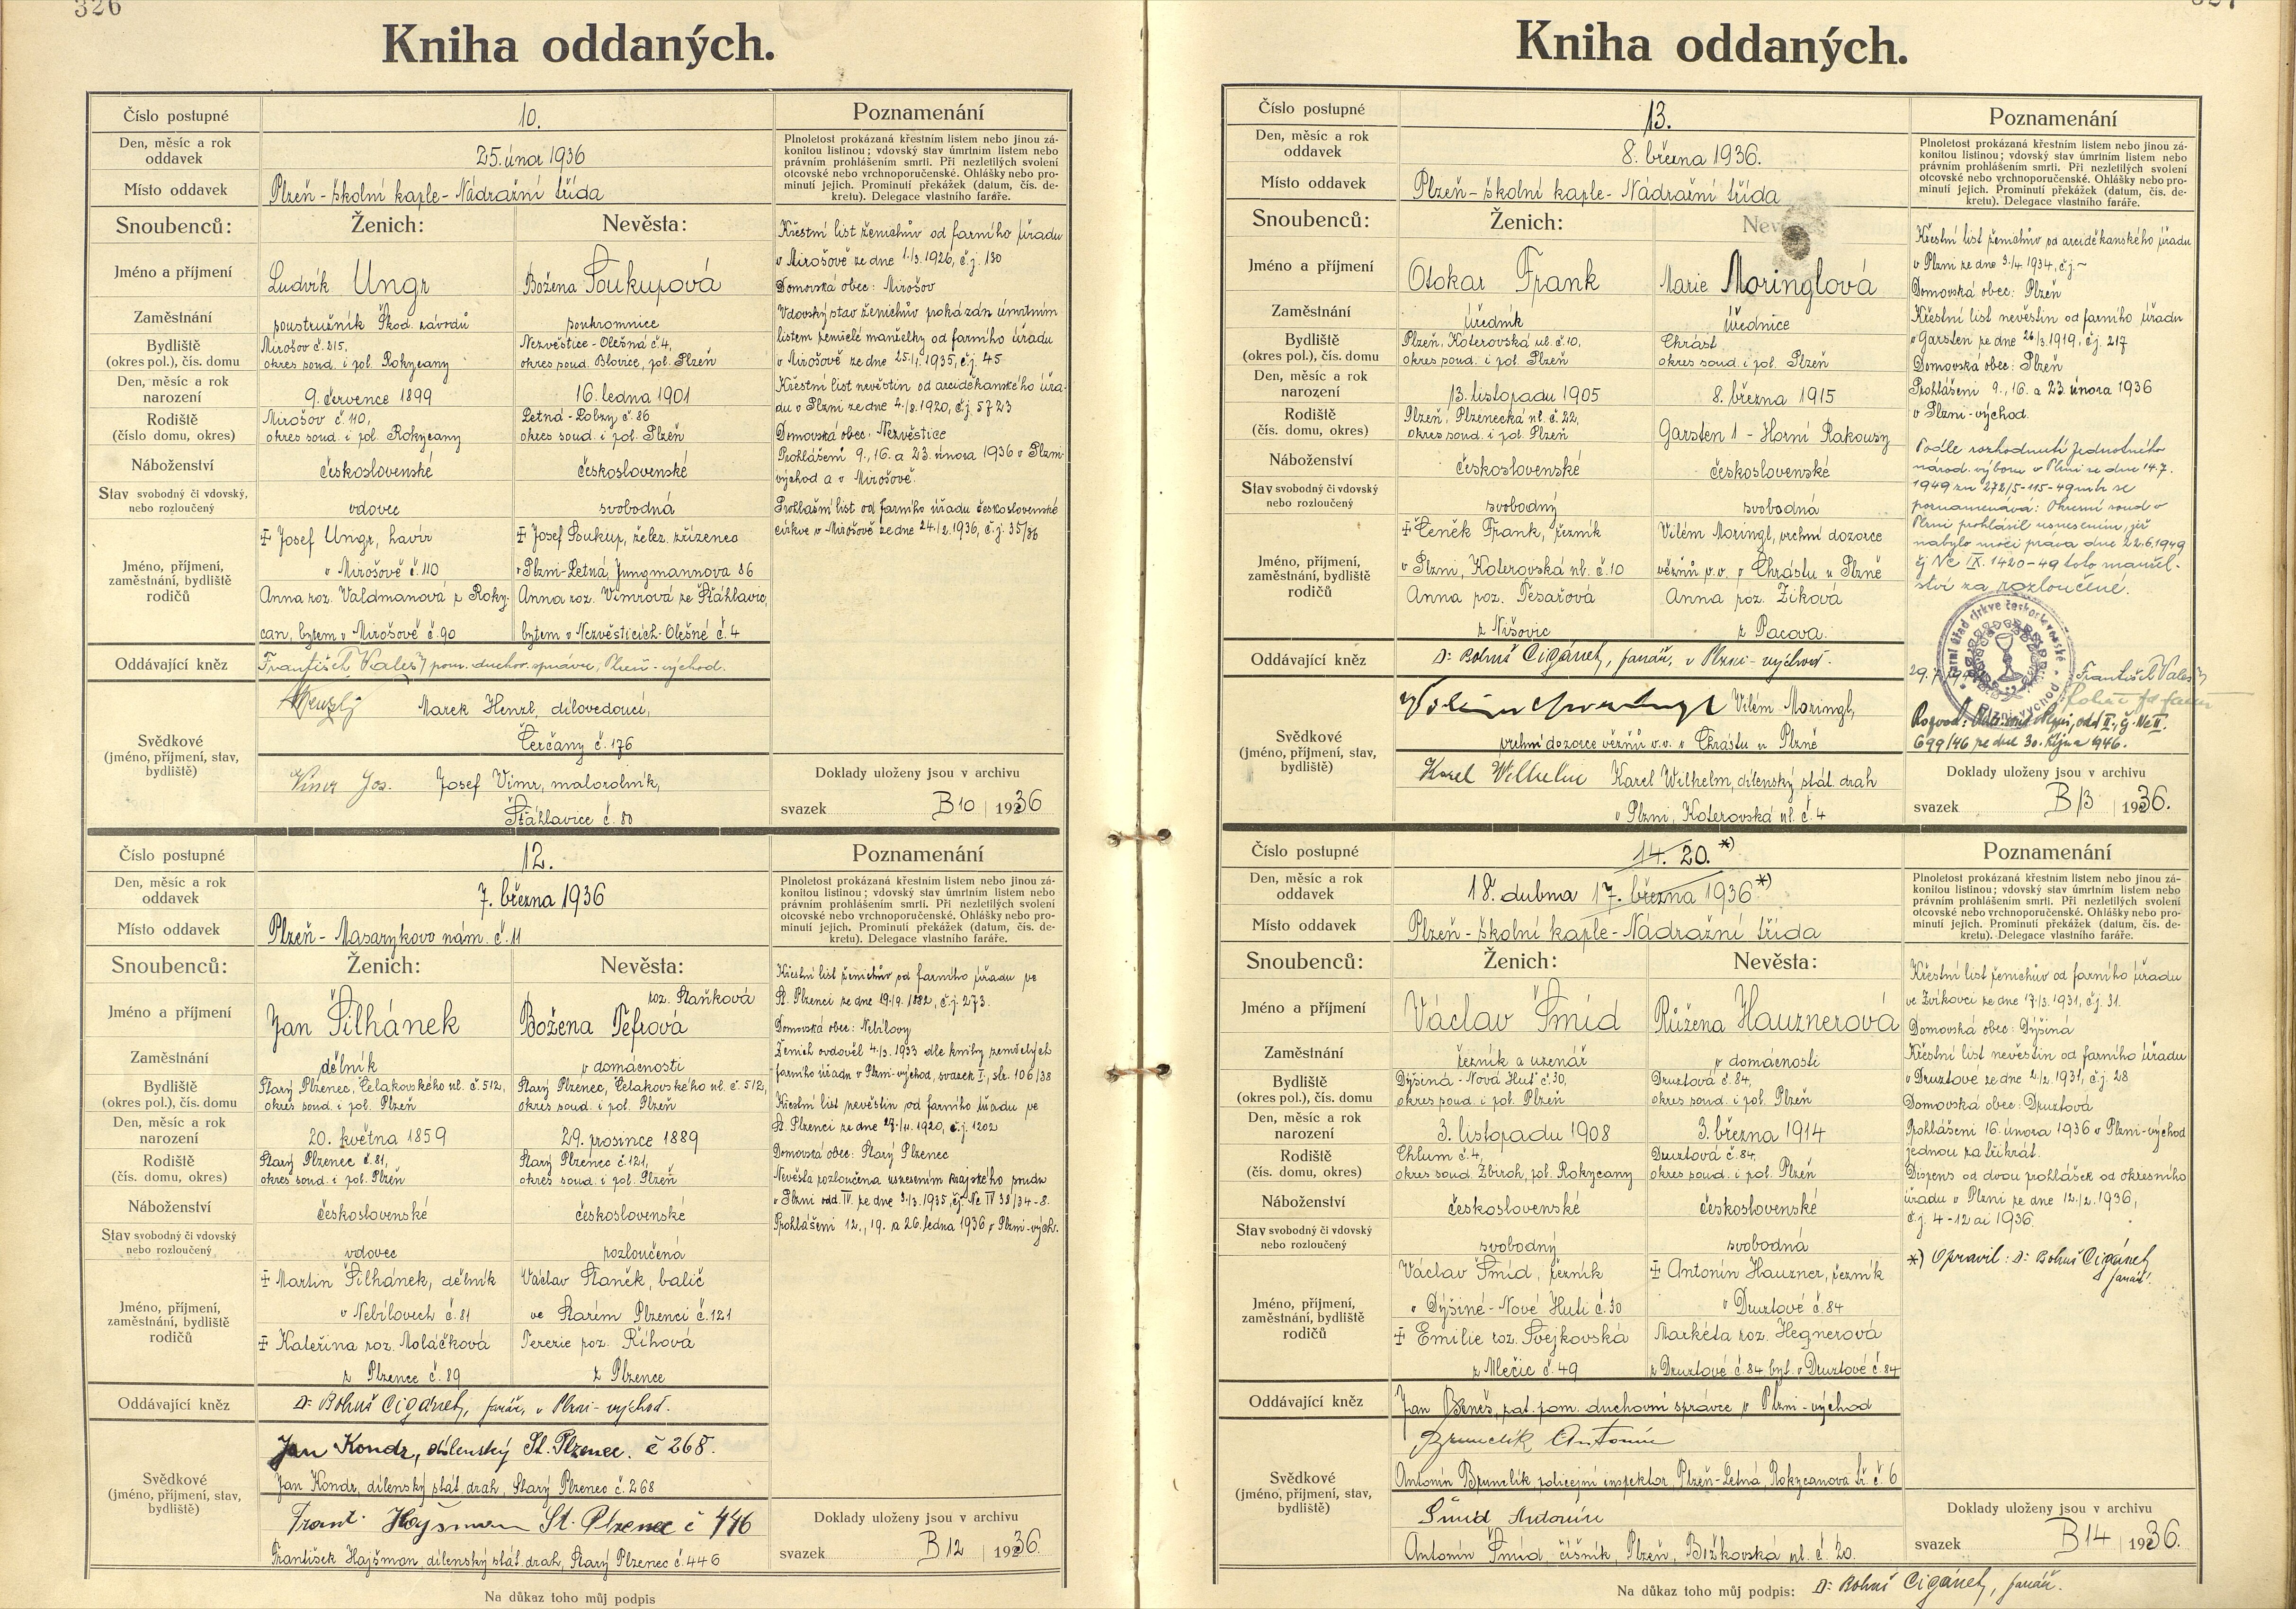 326
Kniha oddaných.
Číslo postupné
10.
Poznamenání
Den, měsíc a rok
oddavek
25. únor 1936
Plnoletost prokázaná křestním listem nebo jinou zá-
konitou listinou; vdovský stav úmrtním listem nebo
právním prohlášením smrti. Při nezletilých svolení
otcovské nebo vrchnoporučenské. Ohlášky nebo pro-
minutí jejich. Prominutí překážek (datum, čís. de-
kretu). Delegace vlastního faráře.
Místo oddavek
Plzeň - školní kaple - Nádražní třída
Snoubenců:
Ženich:
Nevěsta:
Jméno a příjmení
Ludvík Ungr
Božena Soukupová
Zaměstnání
soustružník Škod. závodů
soukromnice
Bydliště
(okres pol.), čís. domu
Mirošov č. 315,
okres soud. i pol. Rokycany
Nezvěstice - Olešná č. 4,
okres soud. Blovice, pol. Plzeň
Den, měsíc a rok
narození
9. července 1899
16. ledna 1901
Rodiště
(číslo domu, okres)
Mirošov č. 110,
okres soud. i pol. Rokycany
Letná - Lobzy č. 86
okres soud. i pol. Plzeň
Náboženství
československé
československé
Stav svobodný či vdovský,
nebo rozloučený
vdovec
svobodná
Jméno, příjmení,
zaměstnání, bydliště
rodičů
‡ Josef Ungr, havíř
v Mirošově č. 110
Anna roz. Valdmanová z Roky-
can, bytem v Mirošově č. 90
‡ Josef Soukup, želez. zřízenec
v Plzni-Letná, Jungmannova 86
Anna roz. Vimrová ze Šťáhlavic,
bytem v Nezvěsticích-Olešné č. 4
Oddávající kněz
František Kalesý pom. duchov. správce, Plzeň - východ.
Svědkové
(jméno, příjmení, stav,
bydliště)
Marek Henzl, dílovedoucí,
Čerčany č. 176
Vimr Jos. Josef Vimr, malorolník,
Šťáhlavice č. 80
Křestní list ženichův od farního úřadu
v Mirošově ze dne 1./3. 1926, č.j. 130
Domovská obec: Mirošov
Vdovský stav ženichův prokázán úmrtním
listem zemřelé manželky od farního úřadu
v Mirošově ze dne 25./1. 1935, č.j. 45
Křestní list nevěstin od arciděkanského úřa-
du v Plzni ze dne 4./8. 1920, č.j. 5723
Domovská obec: Nezvěstice
Prohlášení 9., 16. a 23. února 1936 v Plzni-
východ a v Mirošově.
Prohlašní list od farního úřadu československé
církve v Mirošově ze dne 24./2. 1936, č.j. 35/36
Doklady uloženy jsou v archivu
svazek B 10 1936
Číslo postupné
12.
Poznamenání
Den, měsíc a rok
oddavek
7. března 1936
Plnoletost prokázaná křestním listem nebo jinou zá-
konitou listinou; vdovský stav úmrtním listem nebo
právním prohlášením smrti. Při nezletilých svolení
otcovské nebo vrchnoporučenské. Ohlášky nebo pro-
minutí jejich. Prominutí překážek (datum, čís. de-
kretu). Delegace vlastního faráře.
Místo oddavek
Plzeň - Masarykovo nám. č. 11
Snoubenců:
Ženich:
Nevěsta:
Jméno a příjmení
Jan Šilhánek
roz. Staňková
Božena Tefrová
Zaměstnání
dělník
v domácnosti
Bydliště
(okres pol.), čís. domu
Starý Plzenec, Čelakovského ul. č. 512,
okres soud. i pol. Plzeň
Starý Plzenec, Čelakovského ul. č. 512,
okres soud. i pol. Plzeň
Den, měsíc a rok
narození
20. května 1859
29. prosince 1889
Rodiště
(čís. domu, okres)
Starý Plzenec č. 81,
okres soud. i pol. Plzeň
Starý Plzenec č. 121,
okres soud. i pol. Plzeň
Náboženství
československé
československé
Stav svobodný či vdovský
nebo rozloučený
vdovec
rozloučená
Jméno, příjmení,
zaměstnání, bydliště
rodičů
‡ Martin Šilhánek, dělník
v Nebílovech č. 81
‡ Kateřina roz. Moláčková
z Plzence č. 89
Václav Staněk, balič
ve Starém Plzenci č. 121
Terezie roz. Říhová
z Plzence
Oddávající kněz
Dr Bohuš Cigánek, farář, v Plzni - východ.
Svědkové
(jméno, příjmení, stav,
bydliště)
Jan Kondr, dílenský St. Plzenec. č 268.
Jan Kondr, dílenský stát. drah, Starý Plzenec č. 268
Frant. Hajšman St. Plzenec č 446
František Hajšman, dílenský stát. drah, Starý Plzenec č. 446
Křestní list ženichův od farního úřadu ve
St. Plzenci ze dne 19./9. 1882, č.j. 273.
Domovská obec: Nebílovy
Ženich ovdověl 4./3. 1933 dle knihy zemřelých
farního úřadu v Plzni-východ, svazek I., str. 106/38
Křestní list nevěstin od farního úřadu ve
St. Plzenci ze dne 27./11. 1920, č.j. 1202
Domovská obec: Starý Plzenec
Nevěsta rozloučena usnesením krajského soudu
v Plzni odd. IV. ze dne 9./3. 1935, čj. Nc IV 38/34-8.
Prohlášení 12., 19. a 26. ledna 1936 v Plzni-vých.
Doklady uloženy jsou v archivu
svazek B 12 1936.
Na důkaz toho můj podpis
Kniha oddaných.
Číslo postupné
13.
Poznamenání
Den, měsíc a rok
oddavek
8. března 1936.
Plnoletost prokázaná křestním listem nebo jinou zá-
konitou listinou; vdovský stav úmrtním listem nebo
právním prohlášením smrti. Při nezletilých svolení
otcovské nebo vrchnoporučenské. Ohlášky nebo pro-
minutí jejich. Prominutí překážek (datum, čís. de-
kretu). Delegace vlastního faráře.
Místo oddavek
Plzeň - školní kaple - Nádražní třída
Snoubenců:
Ženich:
Jméno a příjmení
Otokar Frank
Marie Moringlová
Zaměstnání
úředník
úřednice
Bydliště
(okres pol.), čís. domu
Plzeň, Koterovská ul. č. 10,
okres soud. i pol. Plzeň
Chrást
okres soud. i pol. Plzeň
Den, měsíc a rok
narození
13. listopadu 1905
8. března 1915
Rodiště
(čís. domu, okres)
Plzeň, Plzenecká ul. č. 22,
okres soud. i pol. Plzeň
Garsten 1 - Horní Rakousy
Náboženství
československé
československé
Stav svobodný či vdovský
nebo rozloučený
svobodný
svobodná
Jméno, příjmení,
zaměstnání, bydliště
rodičů
‡ Čeněk Frank, řezník
v Plzni, Koterovská ul. č. 10
Anna roz. Tesařová
z Nišovic
Vilém Moringl, vrchní dozorce
vězňů v.v. v Chrástu u Plzně
Anna roz. Ziková
z Pacova.
Oddávající kněz
Dr Bohuš Cigánek, farář, v Plzni - východ.
Svědkové
(jméno, příjmení, stav,
bydliště)
Vilém Moringl,
vrchní dozorce vězňů v.v. v Chrástu u Plzně
Karel Wilhelm Karel Wilhelm, dílenský stát. drah
v Plzni, Koterovská ul. č. 4
Křestní list ženichův od arciděkanského úřadu
v Plzni ze dne 3./4. 1934, č.j. -
Domovská obec: Plzeň
Křestní list nevěstin od farního úřadu
v Garsten ze dne 26/3. 1919, č.j. 217
Domovská obec: Plzeň
Prohlášení 9., 16. a 23. února 1936
v Plzni-východ.
Podle rozhodnutí Jednotného
národ. výboru v Plzni ze dne 14.7.
1949 zn 272/5-115-49 se
poznamenává: Okresní soud v
Plzni prohlásil usnesením, jež
nabylo moci práva dne 22.6.1949
čj Nc IX. 1420-49 toto manžel-
ství za rozloučené.
Farní úřad církve československé
Plzni-východ
František Kalesý
Rozvod: Okr. soud Plzni, odd II., čj. Nc II.
699/46 ze dne 30. října 1946.
Doklady uloženy jsou v archivu
svazek B 13 1936.
Číslo postupné
14. 20. *)
Poznamenání
Den, měsíc a rok
oddavek
18. dubna 17. března 1936 *)
Plnoletost prokázaná křestním listem nebo jinou zá-
konitou listinou; vdovský stav úmrtním listem nebo
právním prohlášením smrti. Při nezletilých svolení
otcovské nebo vrchnoporučenské. Ohlášky nebo pro-
minutí jejich. Prominutí překážek (datum, čís. de-
kretu). Delegace vlastního faráře.
Místo oddavek
Plzeň - školní kaple - Nádražní třída
Snoubenců:
Ženich:
Nevěsta:
Jméno a příjmení
Václav Šmíd
Růžena Hauznerová
Zaměstnání
řezník a uzenář
v domácnosti
Bydliště
(okres pol.), čís. domu
Dýšiná - Nová Huť č. 30,
okres soud. i pol. Plzeň
Druztová č. 84,
okres soud. i pol. Plzeň
Den, měsíc a rok
narození
3. listopadu 1908
3. března 1914
Rodiště
(čís. domu, okres)
Chlum č. 4,
okres soud Zbiroh, pol. Rokycany
Druztová č. 84,
okres soud. i pol. Plzeň
Náboženství
československé
československé
Stav svobodný či vdovský
nebo rozloučený
svobodný
svobodná
Jméno, příjmení,
zaměstnání, bydliště
rodičů
Václav Šmíd, řezník
v Dýšiné - Nové Huti č. 30
‡ Emilie roz. Švejkovská
z Mlečic č. 49
‡ Antonín Hauzner, řezník
v Druztové č. 84
Markéta roz. Hegnerová
z Druztové č. 84 byt. v Druztové č. 84
Oddávající kněz
Jan Beneš, zat. pom. duchovní správce v Plzni - východ
Svědkové
(jméno, příjmení, stav,
bydliště)
Brunclík Antonín
Antonín Brunclík, policejní inspektor, Plzeň-Letná, Rokycanova tř. č. 6
Šmíd Antonín
Antonín Šmíd, číšník, Plzeň, Božkovská ul. č. 20.
Křestní list ženichův od farního úřadu
ve Zvíkovci ze dne 17./3. 1931, č.j. 31.
Domovská obec: Dýšiná
Křestní list nevěstin od farního úřadu
v Druztové ze dne 2./2. 1931, č.j. 28
Domovská obec: Druztová
Prohlášení 16. února 1936 v Plzni-východ
jednou za třikrát.
Dispens od dvou prohlášek od okresního
úřadu v Plzni ze dne 12./2. 1936,
č.j. 4-12 ai 1936.
*) Opravil: Dr Bohuš Cigánek
farář.
Doklady uloženy jsou v archivu
svazek B 14 1936.
Na důkaz toho můj podpis: Dr Bohuš Cigánek, farář.